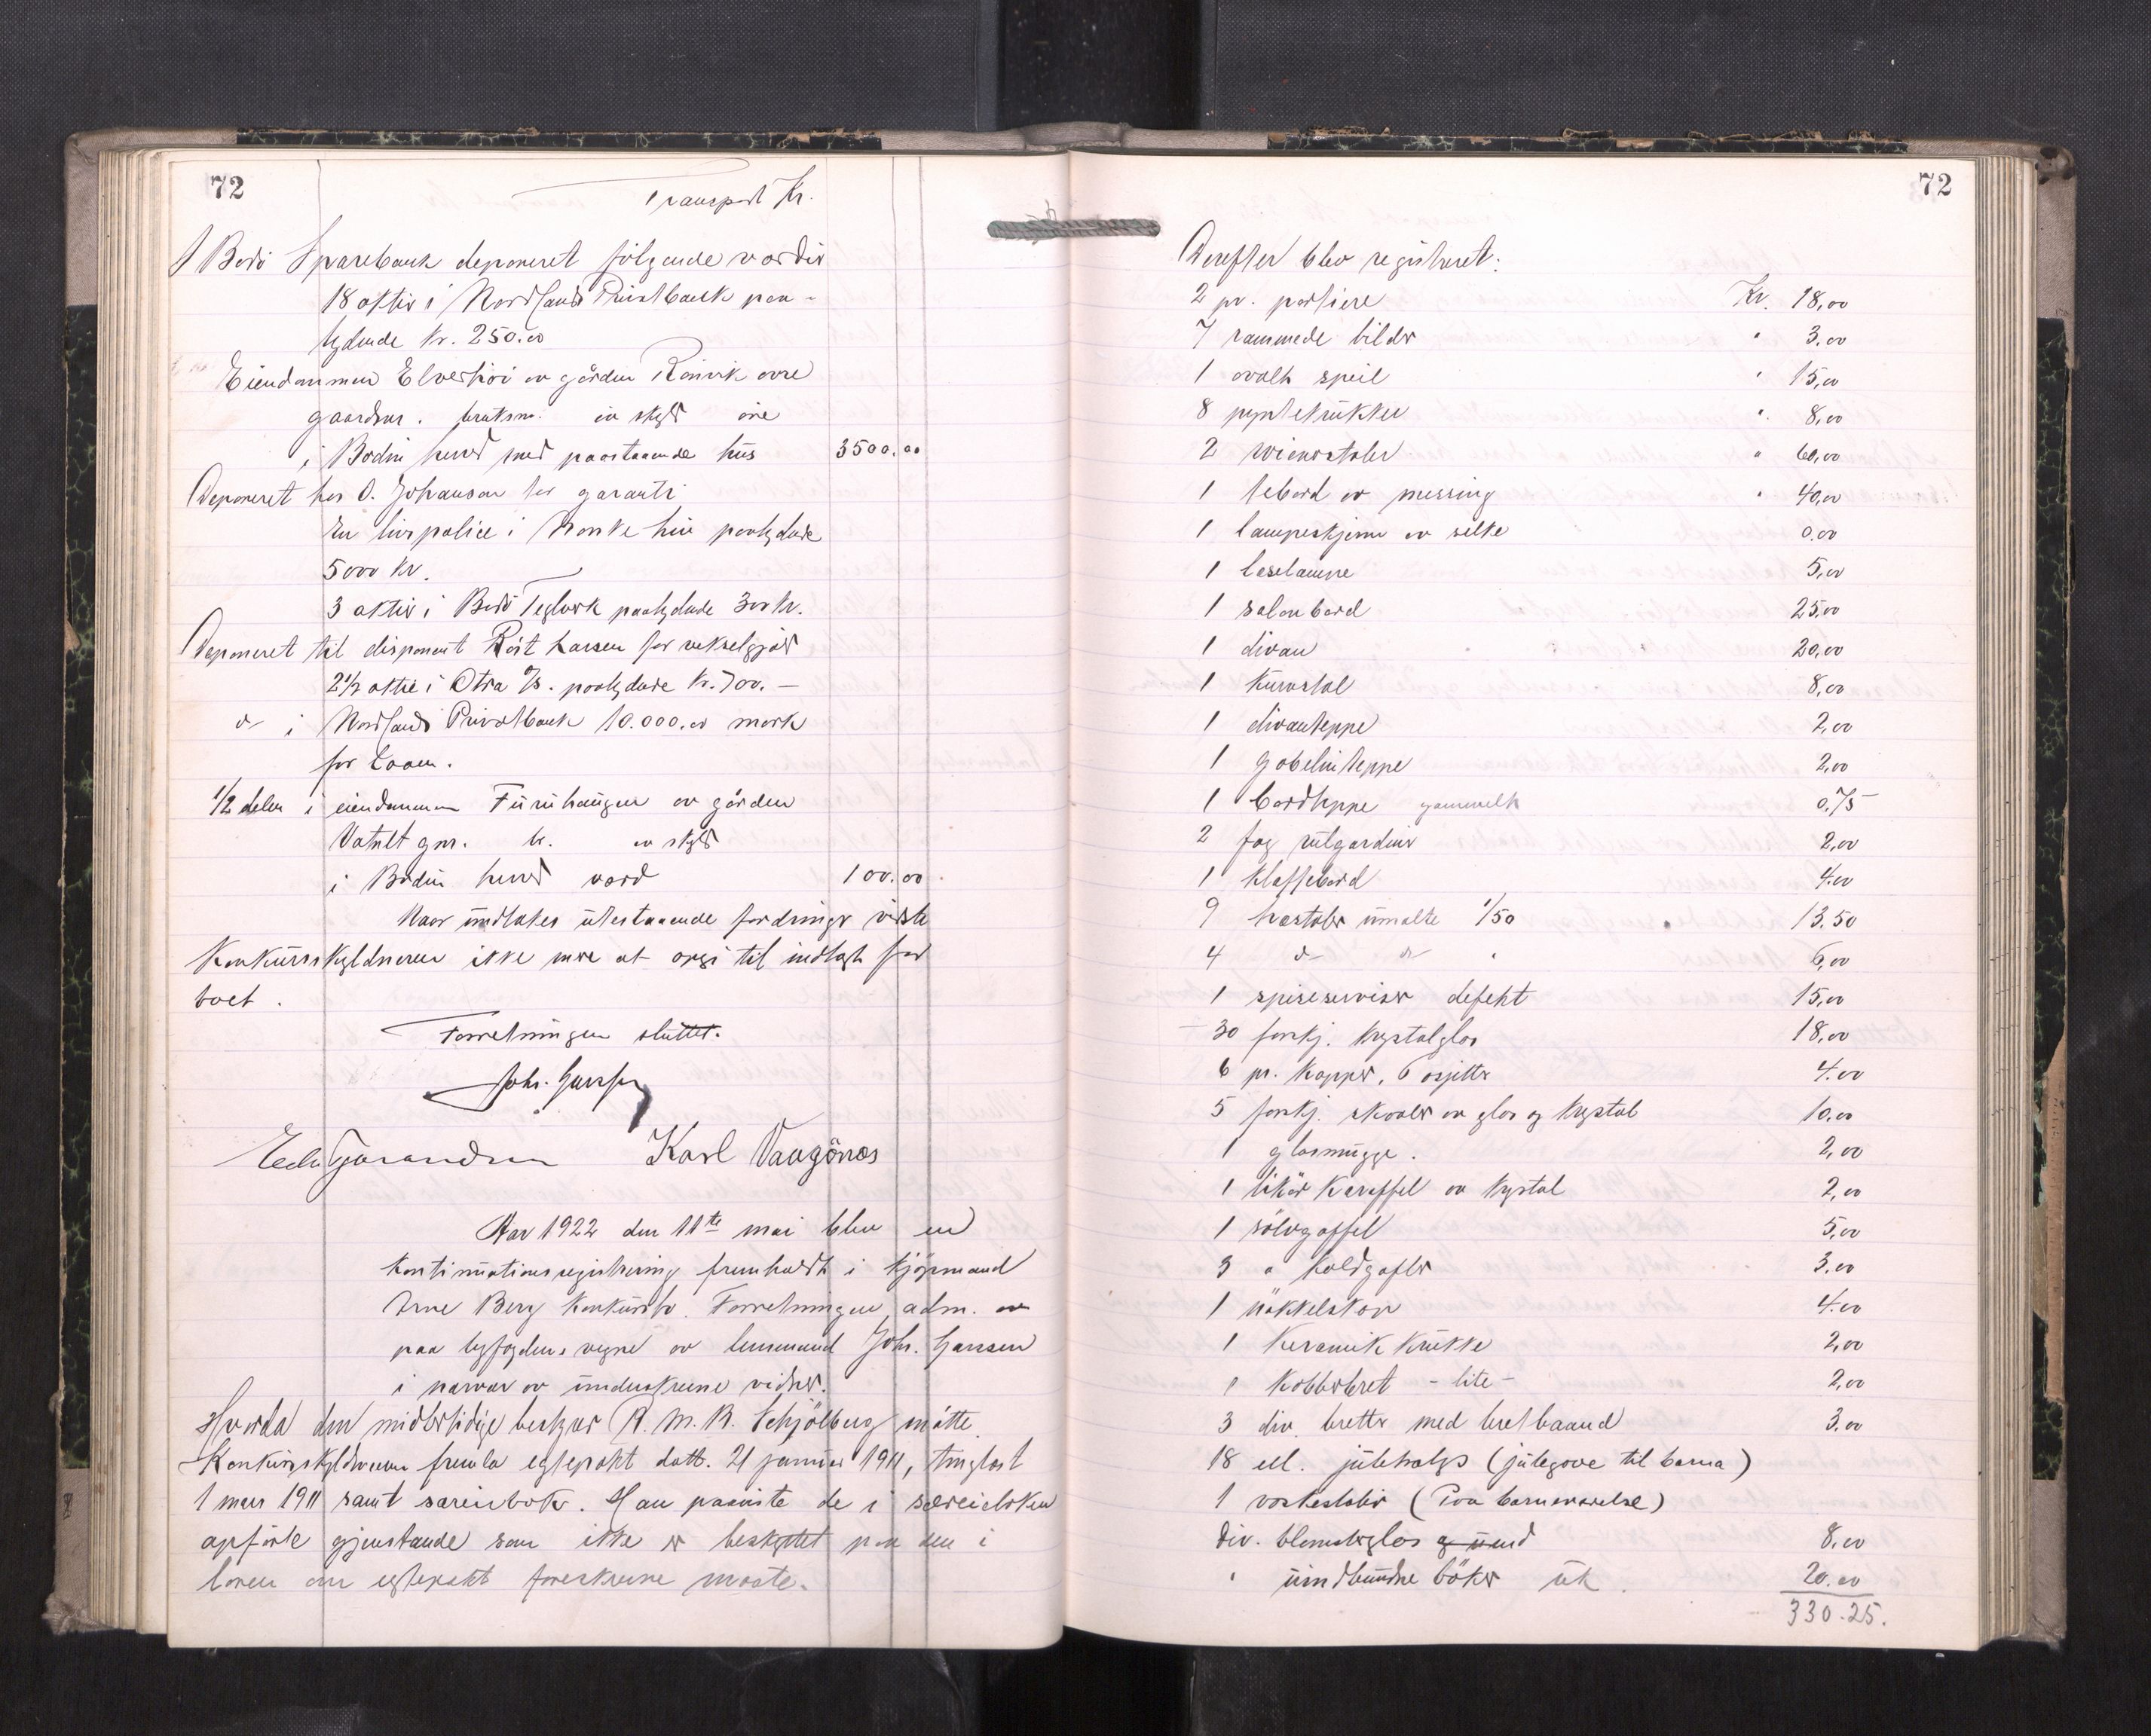 72
Transport Kr.
I Bodö Sparebank deponeret fölgende værdier
18 aktier i Nordlands Privatbank paa-
lydende kr. 250.00
Eiendommen Elverhöi av gården Rönvik övre
gaardsnr. bruksnr. av skyld öre
i Bodin herred med paastaaende hus 3500.00
Deponeret hos O. Johansen for garanti
En livspolice i Norske liv paalydende
5000 kr.
3 aktier i Bodö Teglverk paalydende 300 kr.
Deponeret til disponent Röst Larsen for vekselgjæld
2 1/2 aktie i Otra A/S. paalydende kr. 700.—
do i Nordlands Privatbank 10.000.00 mark
for Laaen.
1/2 delen i eiendommen Furuhaugen av gården
Vatnlt gnr. br. av skyld
i Bodin herred værd 100.00
Naar undtakes utestaaende fordringer visste
Konkursskyldneren ikke mere at opgi til indtægt for
boet.
Forretningen sluttet.
Johs. Hanssen
Karl Vangönes
Aar 1922 den 11te mai blev en
kontinuationsregistrering fremholdt i kjöpmand
Arne Berg konkursbo. Forretningen adm. av
paa byfogdens vegne av lensmand Johs. Hanssen
i nærvær av underskrevne vidner.
Hvorda den midlertidige bestyrer R. M. B. Schjölberg mötte.
Konkursskyldneren fremla egtepakt datt. 21 januar 1911, tinglæst
1 mars 1911 samt særeiebok. Han paaviste de i særeieboken
opförte gjenstande som ikke er beskyttet paa den i
loven om egtepakt foreskrevne maate.
72
Derefter blev registreret:
2 pr. portiere Kr. 18,00
7 rammede bilder " 3.00
1 ovalt speil " 15,00
8 pyntekrukker " 8,00
2 wienerstoler " 60,00
1 tebord av messing " 40,00
1 lampeskjerm av silke 0.00
1 læselampe 5,00
1 salonbord 25.00
1 divan 20,00
1 kurvstol 8,00
1 divanteppe 2,00
1 gobelinteppe 2,00
1 bordteppe gammelt 0.75
2 fag rulgardiner 2,00
1 klaffebord 4.00
9 træstoler umalte 1/50 13.50
4 do do " 6,00
1 spiseserviser defekt 15,00
30 forskj. krystalglas 18,00
6 pr. kopper, 6 asjetter 4.00
5 forskj. skaaler av glas og krystal 10.00
1 glasmugge. 2,00
1 likör karaffel av krystal 2,00
1 sölvgaffel 5,00
3 " koldgafler 3.00
1 nökkelskap 4.00
1 Keramik krukke 2,00
1 kobberbret - lite - 2,00
3 div. bretter med bretbaand 3.00
18 ell. (julegave til barna)
1 (Paa barneværelse)
div. blomsterglas og und 8.00
" uindbundne böker 20.00
330.25.